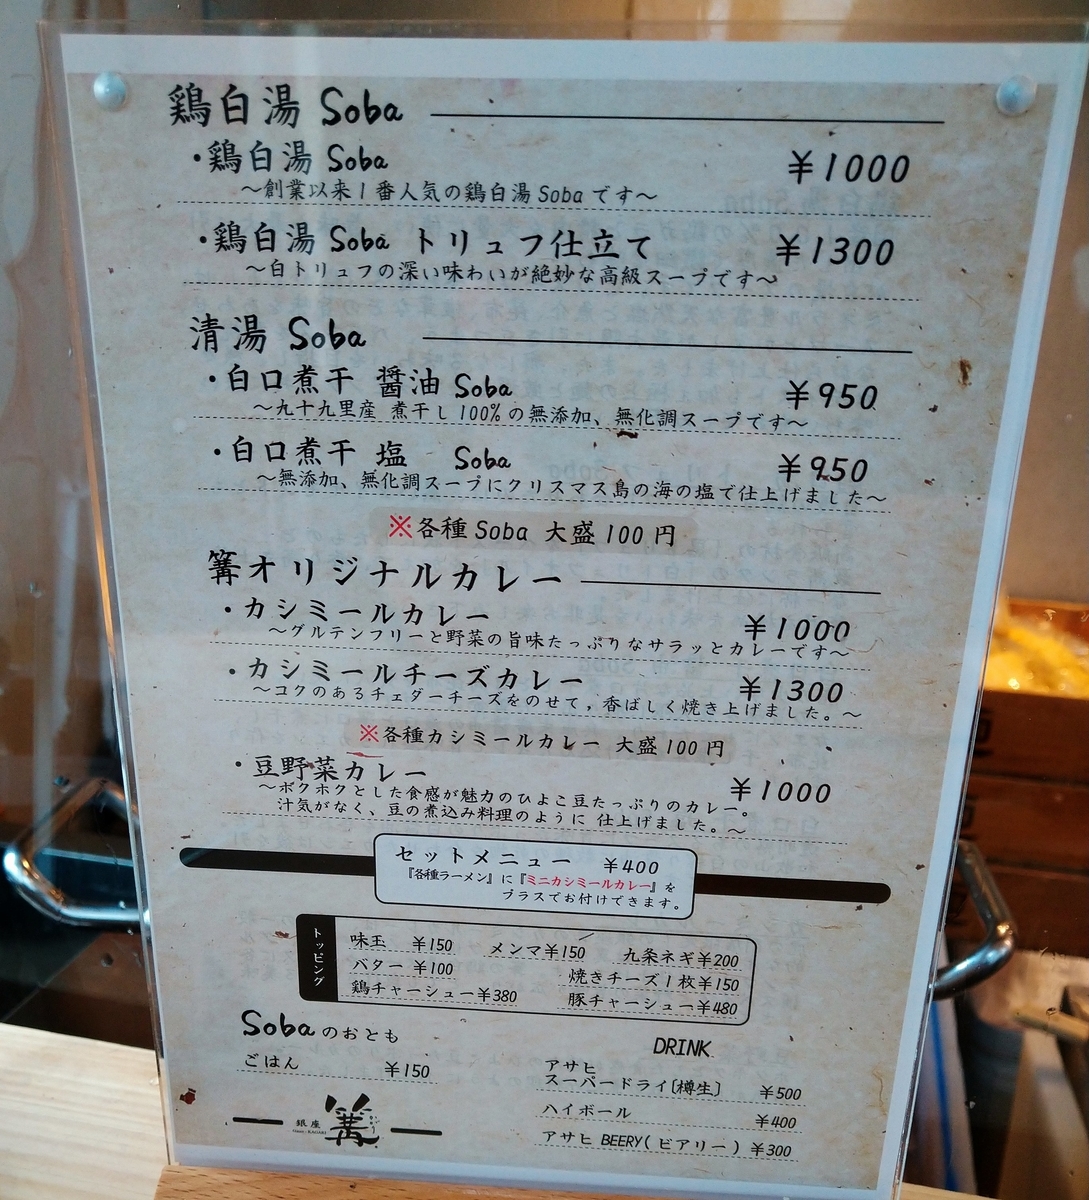 鶏白湯 Soba
・鶏白湯 Soba ￥1000
～創業以来1番人気の鶏白湯Sobaです～
・鶏白湯 Soba トリュフ仕立て ￥1300
～白トリュフの深い味わいが絶妙な高級スープです～
清湯 Soba
・白口煮干 醤油 Soba ￥950
～九十九里産 煮干し100%の無添加、無化調スープです～
・白口煮干 塩 Soba ￥950
～無添加、無化調スープにクリスマス島の海の塩で仕上げました～
※各種Soba 大盛100円
篝オリジナルカレー
・カシミールカレー ￥1000
～グルテンフリーと野菜の旨味たっぷりなサラッとカレーです～
・カシミールチーズカレー ￥1300
～コクのあるチェダーチーズをのせて,香ばしく焼き上げました。～
※各種カシミールカレー 大盛100円
・豆野菜カレー ￥1000
～ホクホクとした食感が魅力のひよこ豆たっぷりのカレー。
汁気がなく、豆の煮込み料理のように 仕上げました。～
セットメニュー ￥400
『各種ラーメン』に『ミニカシミールカレー』を
プラスでお付けできます。
トッピング
味玉 ￥150 メンマ￥150 九条ネギ￥200
バター ￥100 焼きチーズ1枚￥150
鶏チャーシュー￥380 豚チャーシュー￥480
Sobaのおとも
ごはん ￥150
DRINK
アサヒ
スーパードライ〔樽生〕 ￥500
ハイボール ￥400
アサヒ BEERY(ビアリー) ￥300
銀座 篝 かがり
Ginza - KAGARI